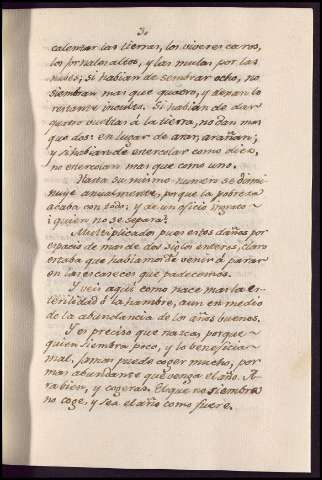 30
calentar las tierras, los viveres caros,
los jornales altos, y las mulas por las
nubes; si habian de sembrar ocho, no
siembran mas que quatro, y dexan lo
restante inculto. Si habian de dar
quatro vueltas á la tierra, no dan mas
que dos: en lugar de arar, arañan;
y si habian de estercolar como diez,
no estercolan mas que como uno.
Hasta su mismo numen se dismi
nuye anualmente, porque la pobreza
acaba con todo: y de un oficio ingrato
¿quien no se separa?
Multiplicados pues estos daños por
espacio de mas de dos siglos enteros, claro
estaba que habiamos de venir á parar
en las escaseces que padecemos.
Y veis aqui como nace mas la es-
terilidad ó la hambre, aun en medio
de la abundancia de los años buenos.
Y es preciso que nazca, porque
quien siembra poco, y lo beneficia
mal, jamas puede coger mucho, por
mas abundante que venga el año. A-
ra bien, y cogeras. El que no siembra
no coge, y sea el año como fuere.